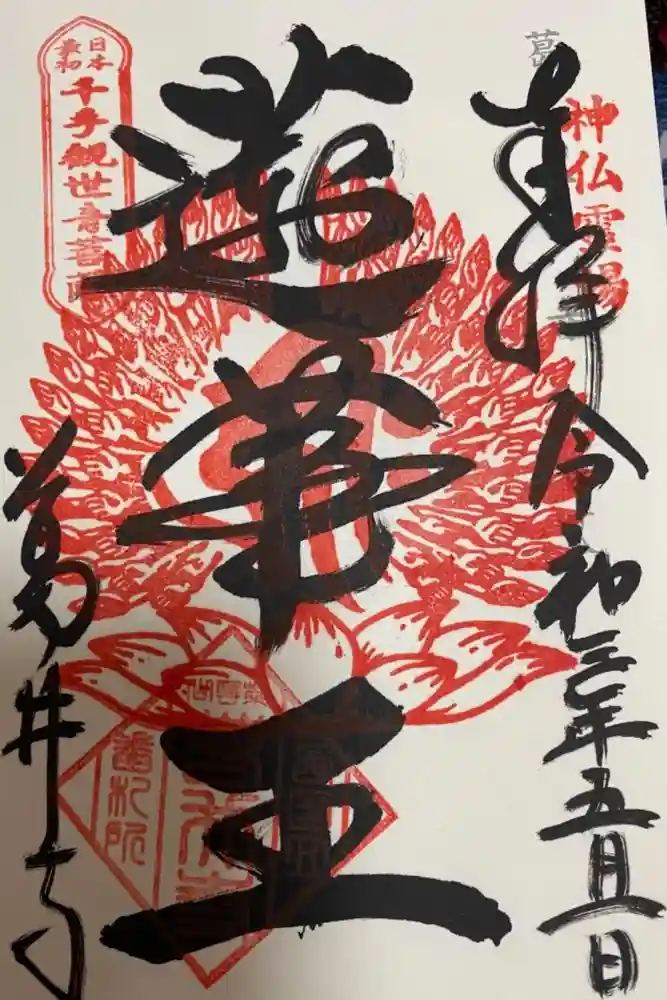 神仏霊場
奉拝 令和三年五月一日
蓮華王
日本
最初
千手観世音菩薩
葛井寺